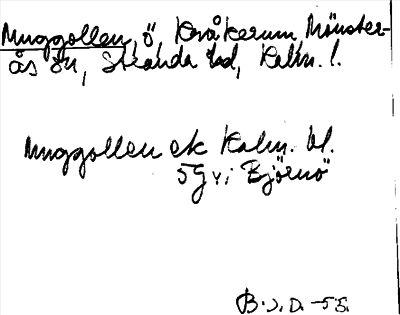 Muggollen, ö Kråkerum Mönster-
ås sn, Stranda hd, Kalm. l.
Muggollen ek Kalm. bl.
5g vi Björnö
B.J.D. -55.